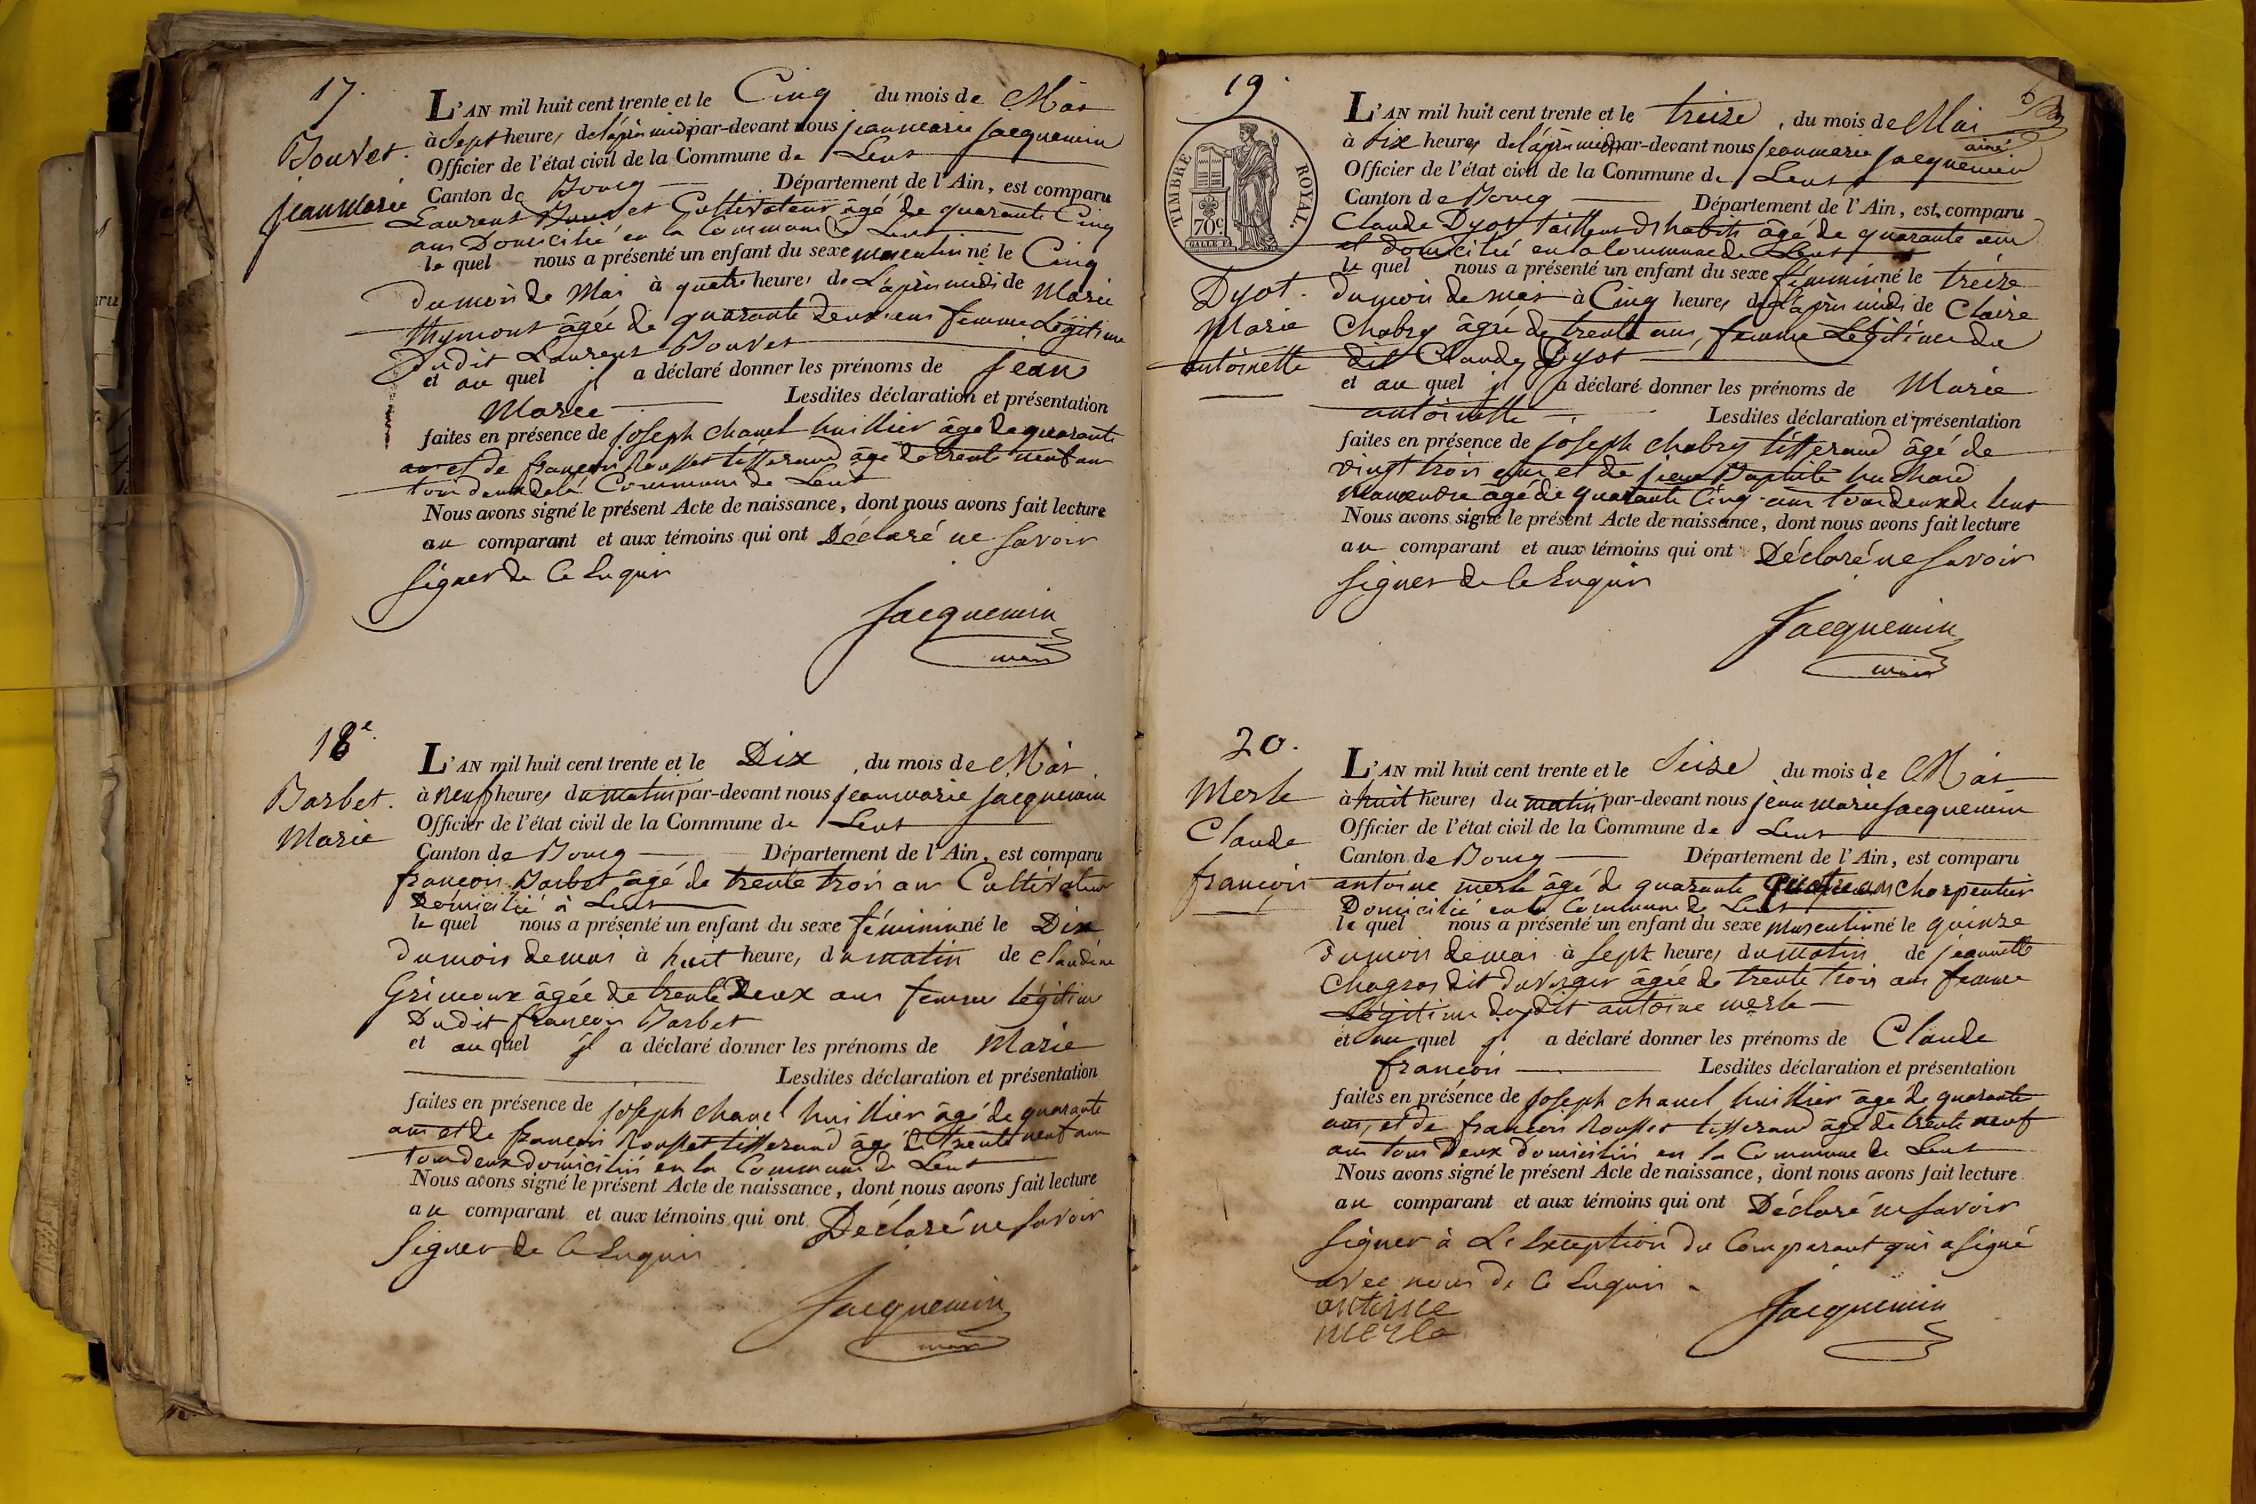 17.
Bouvet.
jean marie
L'AN mil huit cent trente et le Cinq du mois de Mai
à Sept heures de l'après midi par-devant nous jean marie jacquemin
Officier de l'état civil de la Commune de Lent
Canton de Bourg Département de l'Ain, est comparu
Laurent Bouvet Cultivateur âgé de quarante Cinq
ans Domicilié en la Commune de Lent
le quel nous a présenté un enfant du sexe masculin né le Cinq
du mois de Mai à quatre heures de L'après midi de Marie
âgée de quarante Deux ans femme Légitime
Dudit Laurent Bouvet
et au quel il a déclaré donner les prénoms de jean
Marie Lesdites déclaration et présentation
faites en présence de joseph chanel huillier âgé de quarante
ans et de françois Rousset tisserand âgé de trente neuf ans
tous deux de la Commune de Lent
Nous avons signé le présent Acte de naissance, dont nous avons fait lecture
au comparant et aux témoins qui ont Déclaré ne savoir
signer de Ce Enquis
Jacquemin
maire
18e
Barbet.
Marie
L'AN mil huit cent trente et le Dix du mois de Mai
à neuf heures du matin par-devant nous jean marie jacquemin
Officier de l'état civil de la Commune de Lent
Canton de Bourg Département de l'Ain, est comparu
françois Barbet âgé de trente trois ans Cultivateur
Domicilié à Lent
le quel nous a présenté un enfant du sexe féminin né le Dix
du mois de mai à huit heures du matin de claudine
Grimoux âgée de trente Deux ans femme légitime
Dudit françois Barbet
et au quel il a déclaré donner les prénoms de Marie
Lesdites déclaration et présentation
faites en présence de joseph chanel huillier âgé de quarante
ans et de françois Rousset tisserand âgé de trente neuf ans
tous deux domiciliés en la Commune de Lent
Nous avons signé le présent Acte de naissance, dont nous avons fait lecture
au comparant et aux témoins qui ont Déclaré ne savoir
signer de Ce Enquis
Jacquemin
maire
19.
TIMBRE ROYAL.
70c.
Dyot.
Marie
antoinette
L'AN mil huit cent trente et le treize, du mois de Mai
à six heures de l'après midi par-devant nous jean marie jacquemin
Officier de l'état civil de la Commune de Lent
Canton de Bourg Département de l'Ain, est comparu
Claude Dyot tailleur d'habits âgé de quarante ans
et domicilié en la Commune de Lent
le quel nous a présenté un enfant du sexe féminin né le treize
du mois de mai à Cinq heures de l'après midi de Claire
Chabry âgée de trente ans, femme Légitime du
dit Claude Dyot
et au quel il a déclaré donner les prénoms de Marie
antoinette Lesdites déclaration et présentation
faites en présence de joseph chabry tisserand âgé de
vingt trois ans et de jean Baptiste
âgé de quarante Cinq ans tous deux de lent
Nous avons signé le présent Acte de naissance, dont nous avons fait lecture
au comparant et aux témoins qui ont Déclaré ne savoir
signer de Ce Enquis
Jacquemin
maire
20.
Merle
Claude
françois
L'AN mil huit cent trente et le Seize du mois de Mai
à huit heures du matin par-devant nous jean marie jacquemin
Officier de l'état civil de la Commune de Lent
Canton de Bourg Département de l'Ain, est comparu
antoine merle âgé de quarante quatre ans charpentier
Domicilié en la Commune de Lent
le quel nous a présenté un enfant du sexe masculin né le quinze
du mois de mai à sept heures du matin de jeannette
Chagros dit duverger âgée de trente trois ans femme
Légitime dudit antoine merle
et au quel il a déclaré donner les prénoms de Claude
françois Lesdites déclaration et présentation
faites en présence de joseph chanel huillier âgé de quarante
ans, et de françois Rousset tisserand âgé de trente neuf
ans tous Deux domiciliés en la Commune de Lent
Nous avons signé le présent Acte de naissance, dont nous avons fait lecture
au comparant et aux témoins qui ont Déclaré ne savoir
signer à L'Exception du Comparant qui a signé
avec nous de Ce Enquis
antoine
merle
Jacquemin